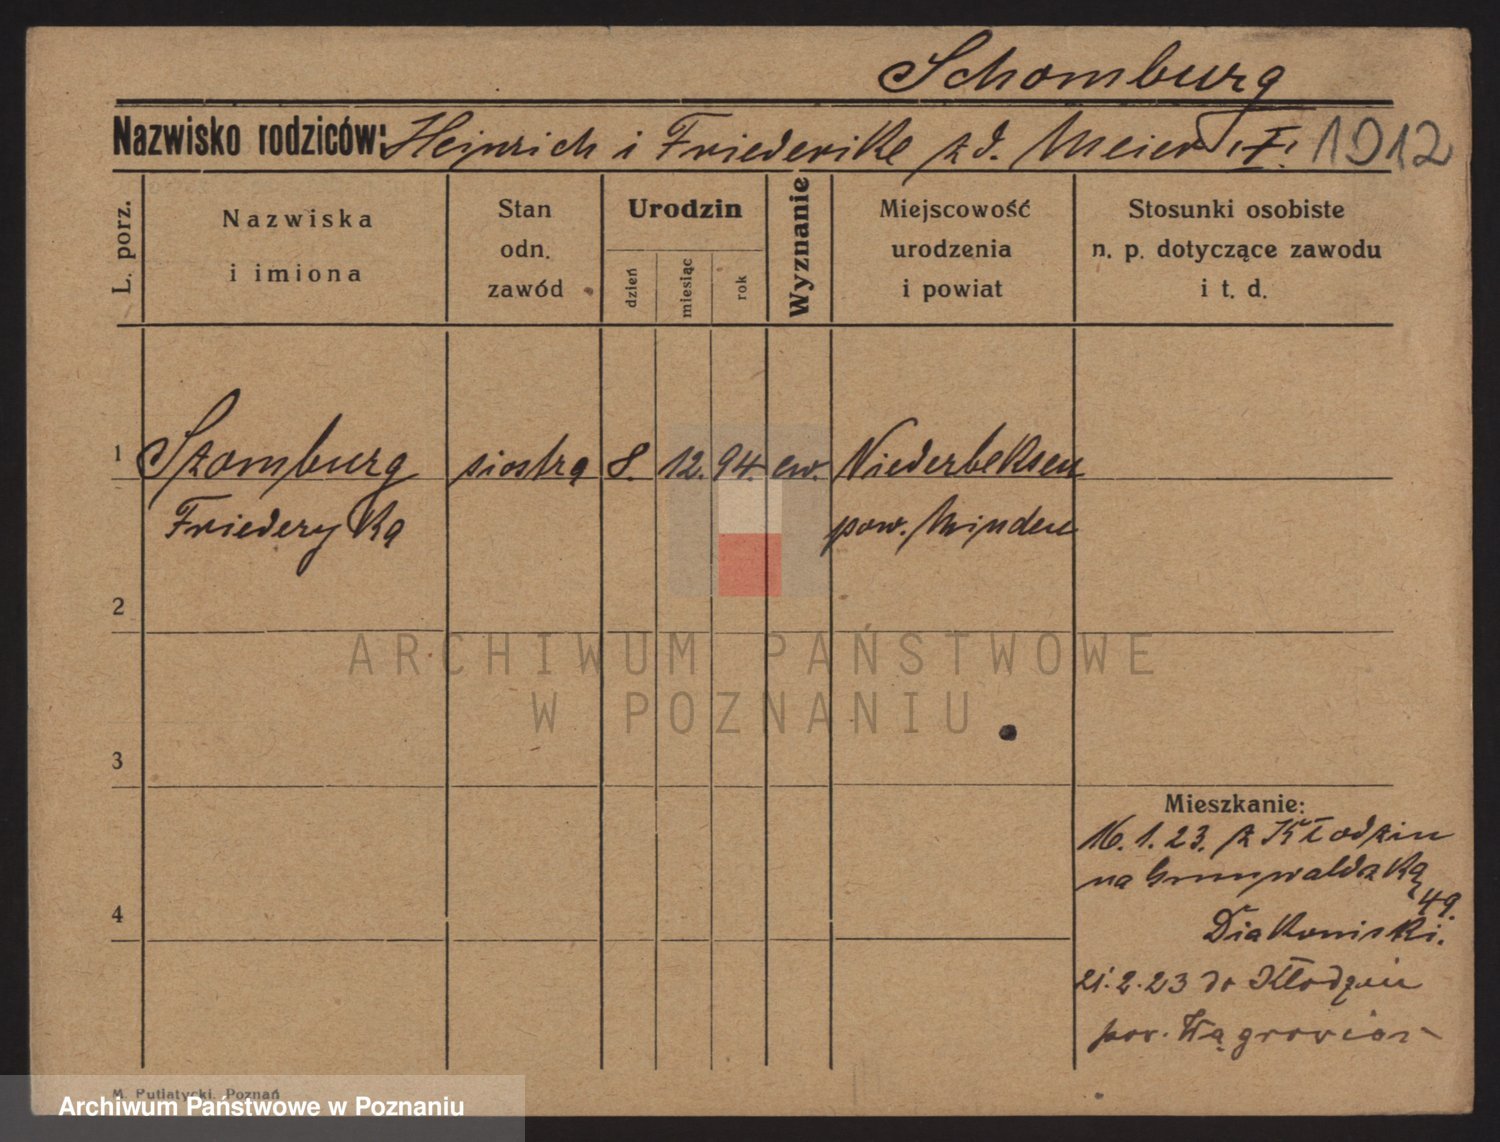 Schomburg
Nazwisko rodziców: Heinrich i Friederike z d. Meier I. 1912
L. porz.
Nazwiska
i imiona
Stan
odn.
zawód
Urodzin
dzień
miesiąc
rok
Wyznanie
Miejscowość
urodzenia
i powiat
Stosunki osobiste
n. p. dotyczące zawodu
i t. d.
1 Szomburg siostra 8. 12. 94. ew. Niederbeksen
Friederyka pow. Minden
2
ARCHIWUM PAŃSTWOWE
W POZNANIU
3
Mieszkanie:
16.1.23. z Kłodzin
na Grunwaldzką
49.
4
Diakoniski.
21.2.23 do Kłodzin
pow. Wągrowiec
M. Putiatycki, Poznań
Archiwum Państwowe w Poznaniu